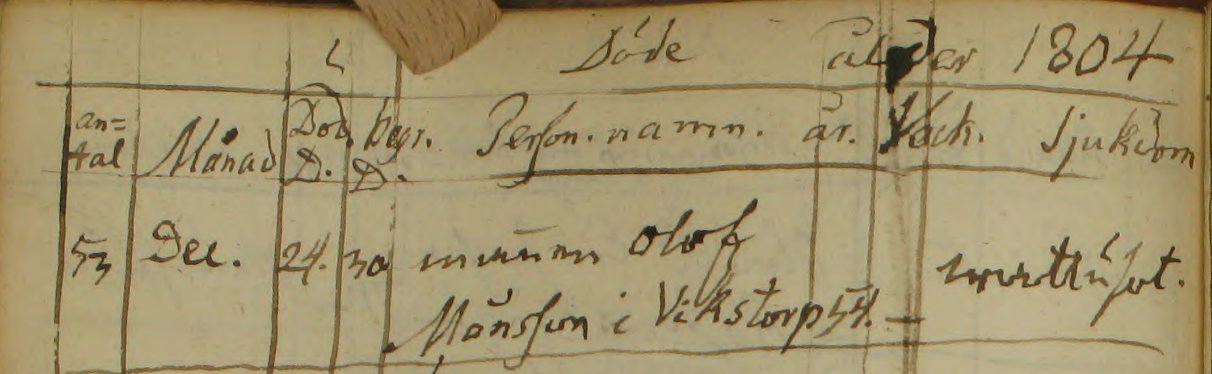 Döde ålder 1804
an= Månad Död begr. Person. namn. år. Veck. Sjukdom
tal D. D.
53 Dec. 24. 30 mannen Olof
Månsson i Vikstorp 54. —